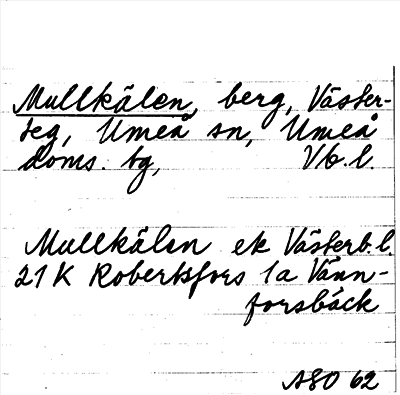 Mullkälen, berg, Väster-
teg, Umeå sn, Umeå
doms. tg, Vb.l.
Mullkälen ek Västerb.l.
21 K Robertsfors 1a Vänn-
forsbäck
ASO 62